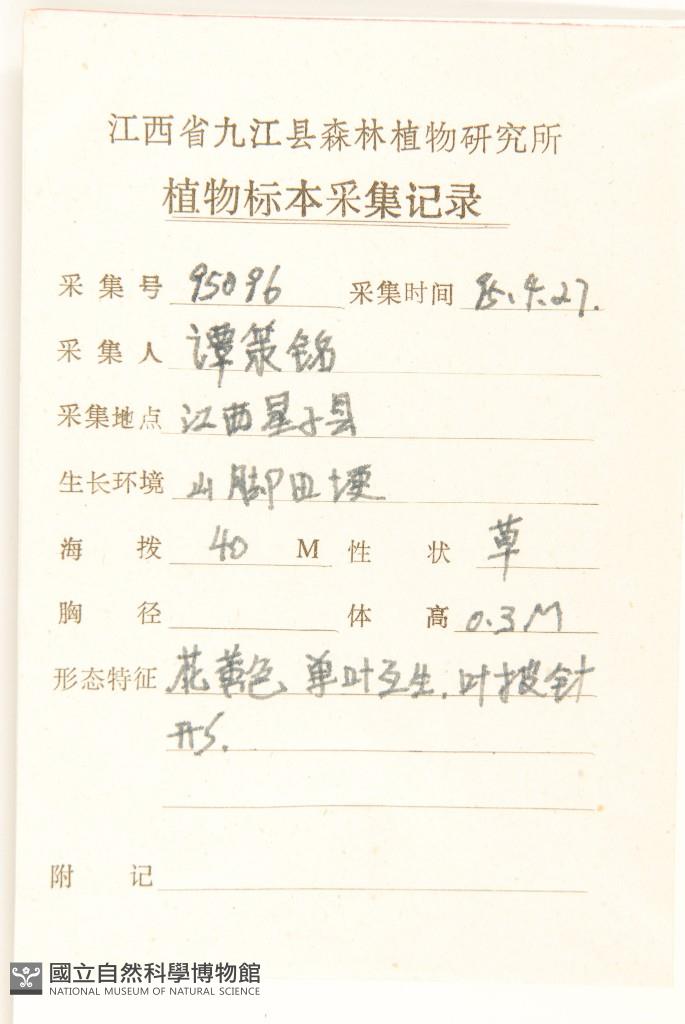 江西省九江县森林植物研究所
植物标本采集记录
采集号 95096 采集时间 95.4.27.
采集人 谭策铭
采集地点 江西星子县
生长环境 山脚田埂
海拨 40 M 性状 草
胸径 体高 0.3M
形态特征 花黄色 单叶互生.叶披针
形.
附记
國立自然科學博物館
NATIONAL MUSEUM OF NATURAL SCIENCE